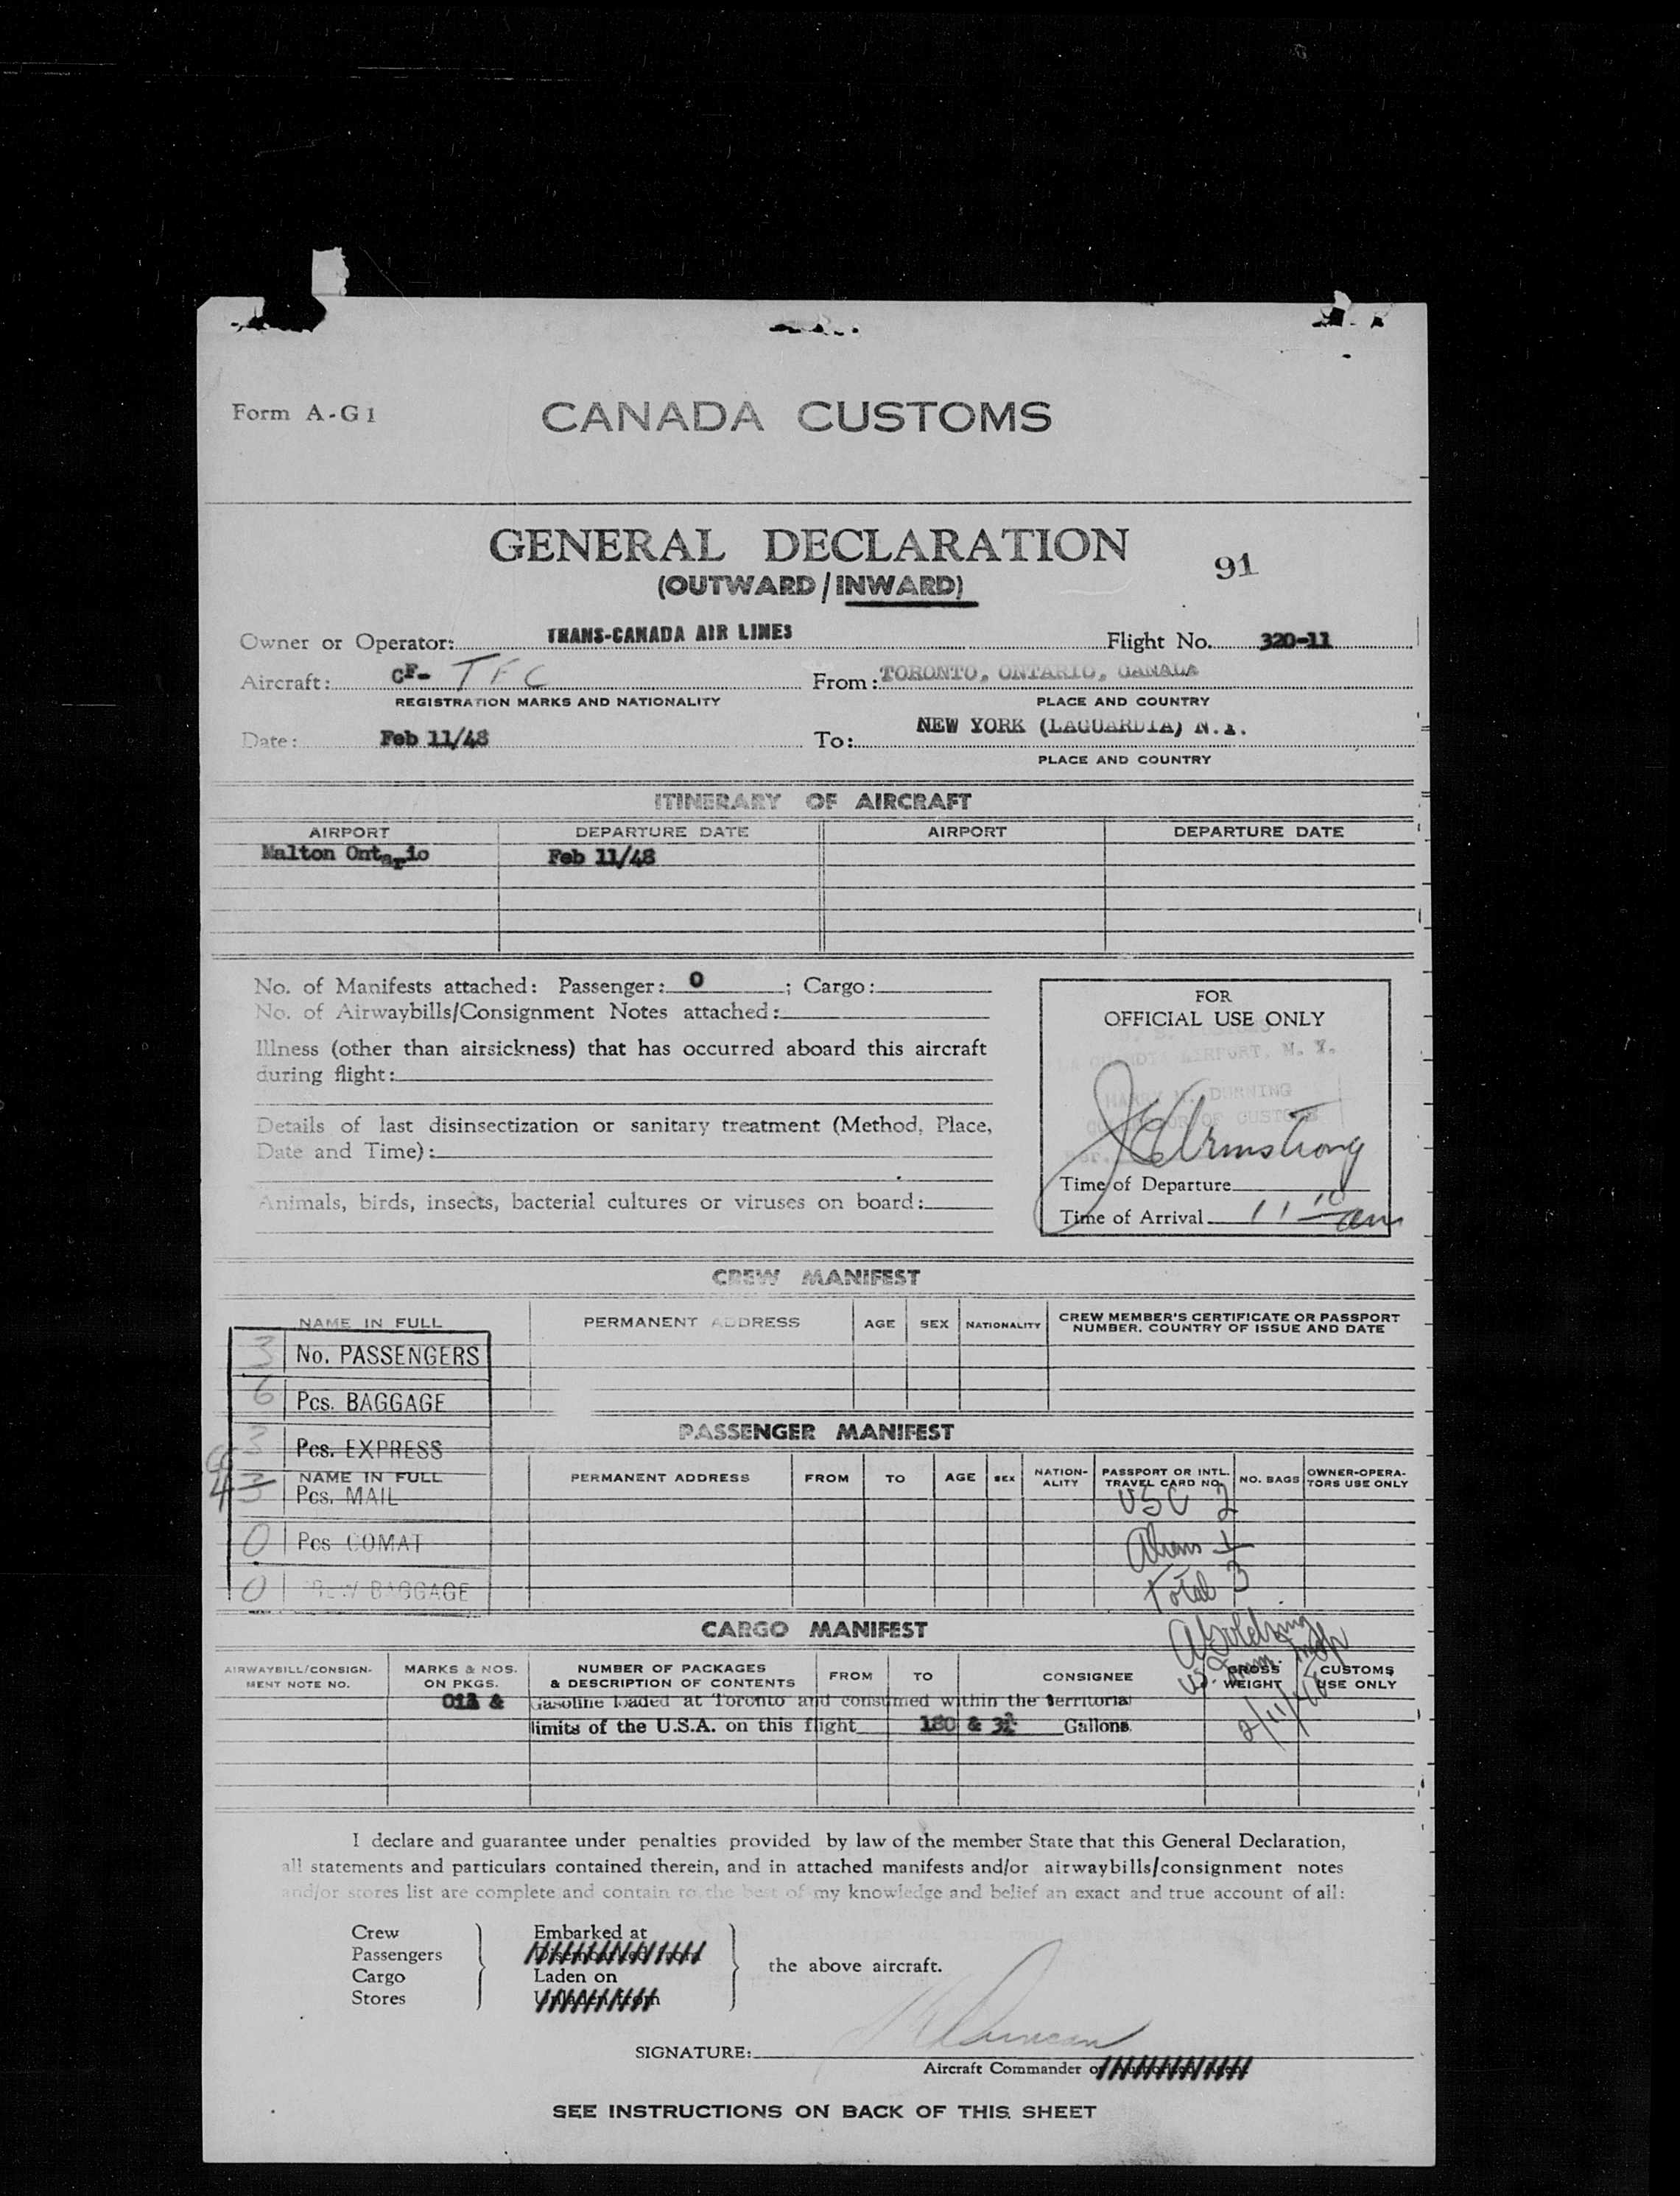 Form A-G1
CANADA CUSTOMS
GENERAL DECLARATION
91
(OUTWARD/INWARD)
Owner or Operator: TRANS-CANADA AIR LINES Flight No. 320-11
Aircraft: CF- TFC From: TORONTO, ONTARIO, CANADA
REGISTRATION MARKS AND NATIONALITY PLACE AND COUNTRY
Date: Feb 11/48 To: NEW YORK (LAGUARDIA) N.Y.
PLACE AND COUNTRY
ITINERARY OF AIRCRAFT
AIRPORT DEPARTURE DATE AIRPORT DEPARTURE DATE
Malton Ontario Feb 11/48
No. of Manifests attached: Passenger: 0 ; Cargo:
No. of Airwaybills/Consignment Notes attached:
Illness (other than airsickness) that has occurred aboard this aircraft
during flight:
Details of last disinsectization or sanitary treatment (Method, Place,
Date and Time):
Animals, birds, insects, bacterial cultures or viruses on board:
FOR
OFFICIAL USE ONLY
AIRPORT, N. Y.
HARRY M. DURNING
COLLECTOR OF CUSTOMS
Armstrong
Time of Departure
Time of Arrival 11 10 am
CREW MANIFEST
NAME IN FULL PERMANENT ADDRESS AGE SEX NATIONALITY CREW MEMBER'S CERTIFICATE OR PASSPORT
NUMBER, COUNTRY OF ISSUE AND DATE
3 No. PASSENGERS
6 Pcs. BAGGAGE
PASSENGER MANIFEST
3 Pcs. EXPRESS
NAME IN FULL PERMANENT ADDRESS FROM TO AGE SEX NATION-
ALITY PASSPORT OR INTL.
TRAVEL CARD NO. NO. BAGS OWNER-OPERA-
TORS USE ONLY
4 3 Pcs. MAIL
USC 2
0 Pcs COMAT
Aliens 1
0 CREW BAGGAGE
Total 3
CARGO MANIFEST
AIRWAYBILL/CONSIGN-
MENT NOTE NO. MARKS & NOS.
ON PKGS. NUMBER OF PACKAGES
& DESCRIPTION OF CONTENTS FROM TO CONSIGNEE GROSS
WEIGHT CUSTOMS
USE ONLY
US Imm. Insp
2/11/48
Oil & Gasoline loaded at Toronto and consumed within the territorial
limits of the U.S.A. on this flight 180 & 3½ Gallons.
I declare and guarantee under penalties provided by law of the member State that this General Declaration,
all statements and particulars contained therein, and in attached manifests and/or airwaybills/consignment notes
and/or stores list are complete and contain to the best of my knowledge and belief an exact and true account of all:
Crew Embarked at
Passengers Disembarked from
the above aircraft.
Cargo Laden on
Stores Unladen from
Duncan
SIGNATURE:
Aircraft Commander or Authorized Agent
SEE INSTRUCTIONS ON BACK OF THIS SHEET